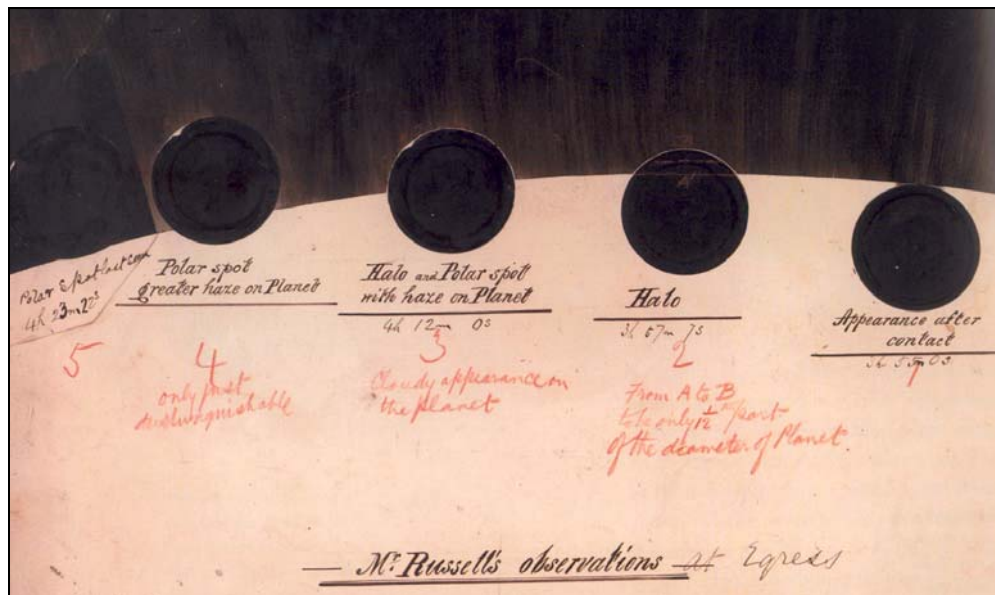 Polar Spot last seen
4h 23m 22s
5
Polar spot
greater haze on Planet
4
only just
distinguishable
Halo and Polar spot
with haze on Planet
4h 12m 0s
3
Cloudy appearance on
the planet
Halo
3h 57m 7s
2
From A to B
to be only 1/12th part
of the diameter of Planet
Appearance after
contact
3h 55m 0s
1
— Mr Russell's observations — at Egress